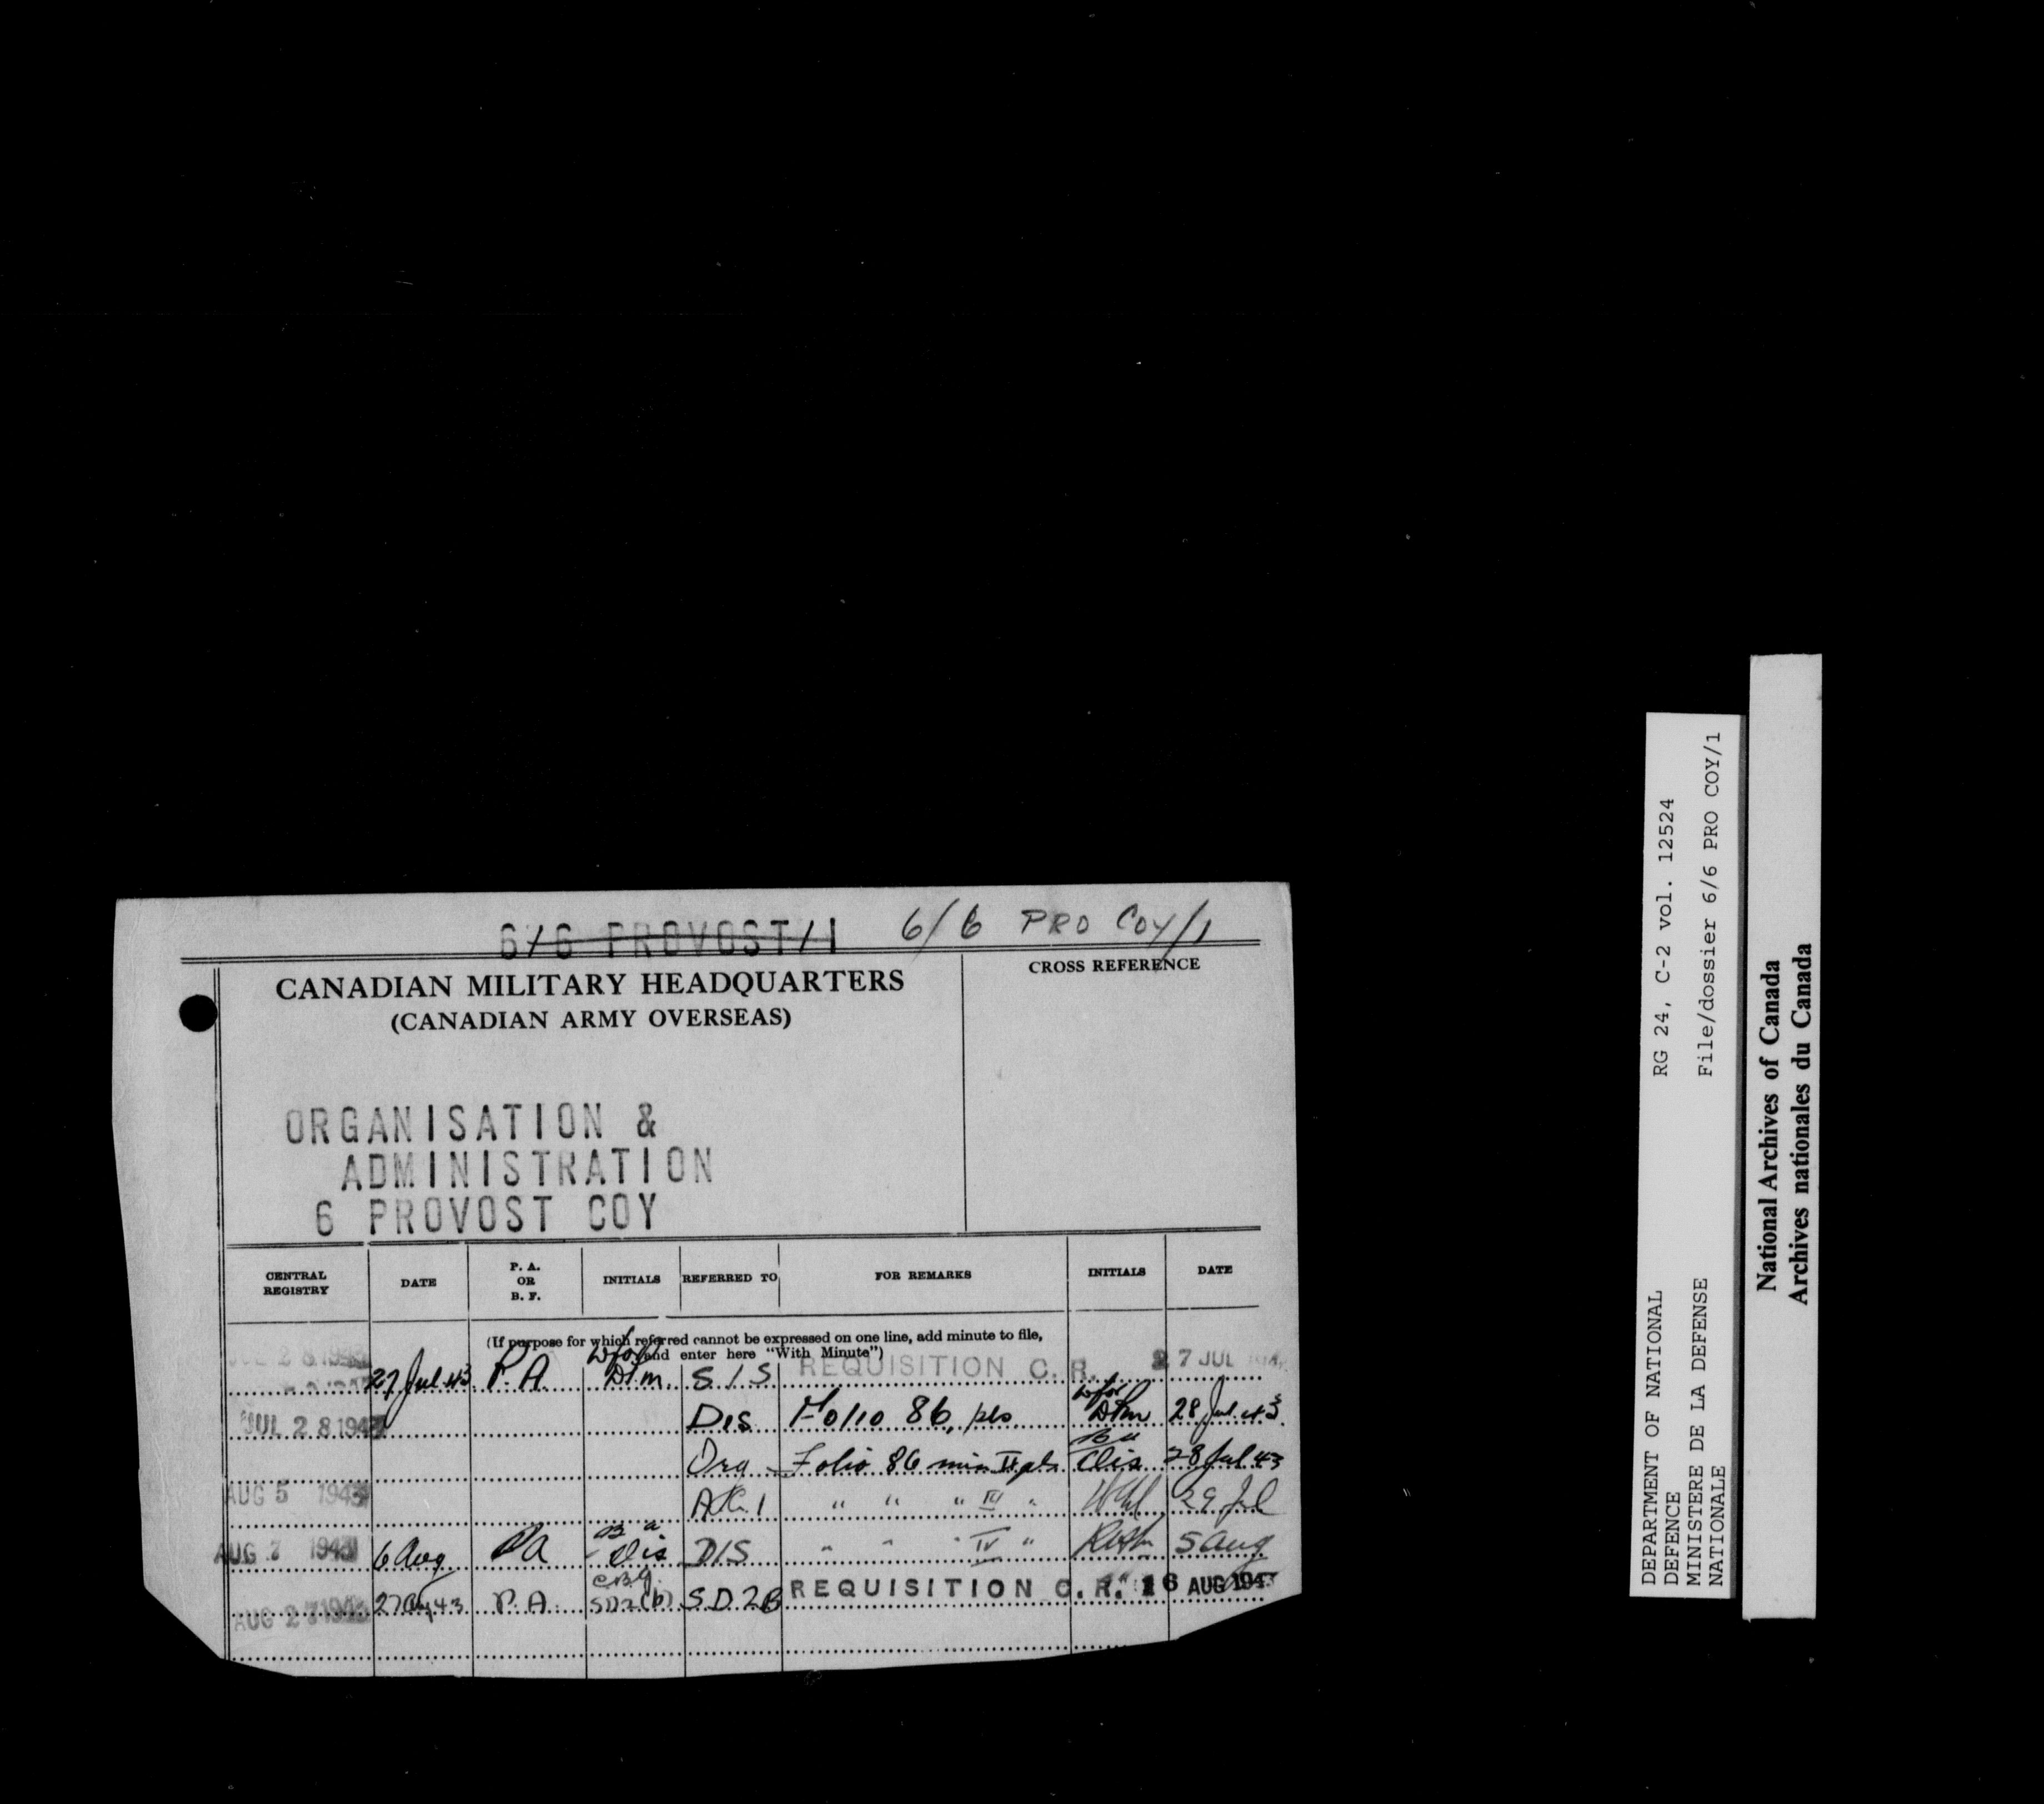 6/6 PROVOST/1 6/6 PRO COY/1
CANADIAN MILITARY HEADQUARTERS
(CANADIAN ARMY OVERSEAS)
CROSS REFERENCE
ORGANISATION &
ADMINISTRATION
6 PROVOST COY
CENTRAL REGISTRY DATE P. A. OR B. F. INITIALS REFERRED TO FOR REMARKS INITIALS DATE
(If purpose for which referred cannot be expressed on one line, add minute to file,
and enter here "With Minute")
JUL 28 1943 27 Jul 43 P.A S/S REQUISITION C. R. 27 JUL
JUL 28 1943 DIS Folio 86, pls 28 Jul 43
Org Folio 86 min II pls DIS 28 Jul 43
AUG 5 1943 AG 1 " " " III " 29 Jul
AUG 7 1943 6 Aug PA DIS DIS " " " IV " 5 Aug
AUG 27 1943 27 Aug 43 P.A. SD2(b) S.D.2B REQUISITION C. R. 16 AUG 1943
DEPARTMENT OF NATIONAL
DEFENCE
MINISTERE DE LA DEFENSE
NATIONALE
RG 24, C-2 vol. 12524
File/dossier 6/6 PRO COY/1
National Archives of Canada
Archives nationales du Canada